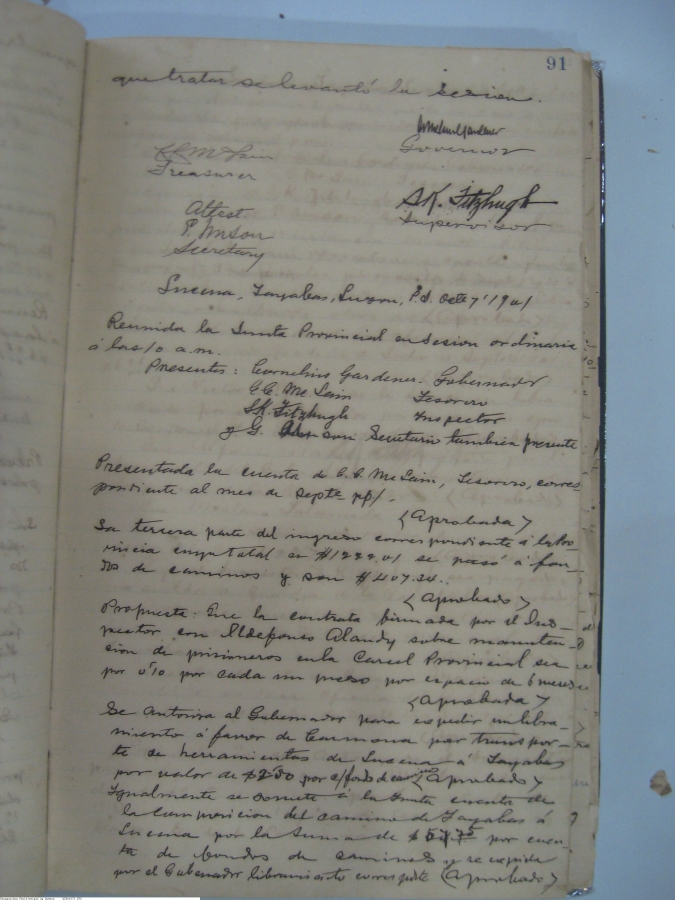 91
que tratar se levantó la sesion.
Governor
C.C. McLain
Treasurer
S.K. Fitzhugh
Supervisor
Attest.
Secretary
Lucena, Tayabas, Luzon, P.I. Octe 7, 1901
Reunida la Junta Provincial en sesion ordinaria
á las 10 a.m.
Presentes: Cornelius Gardener. Gobernador
C.C. McLain Tesorero
S.K. Fitzhugh Inspector
y G. Secretario tambien presente
Presentada la cuenta de C.C. McLain, Tesorero, corres-
pondiente al mes de Septe ppdo/.
<Aprobada>
La tercera parte del ingreso correspondiente á la Pro-
vincia cuyo total es $1222.01 se pasó á fon-
dos de caminos y son $407.34..
<Aprobado>
Propuesta: Que la contrata firmada por el Ins-
pector con Ildefonso Alandy sobre manuten-
cion de prisioneros en la Carcel Provincial sea
por 0'10 por cada un preso por espacio de 6 meses
<Aprobada>
Se autoriza al Gobernador para expedir un libra-
miento á favor de Carmona por transpor-
te de herramientas de Lucena á Tayabas
por valor de por c/ fondo de (Aprobado>
Igualmente se somete á la Junta cuenta de
la composicion del camino de Tayabas á
Lucena por la suma de $ por cuen-
ta de fondos de caminos y se expida
por el Gobernador libramiento (Aprobado>